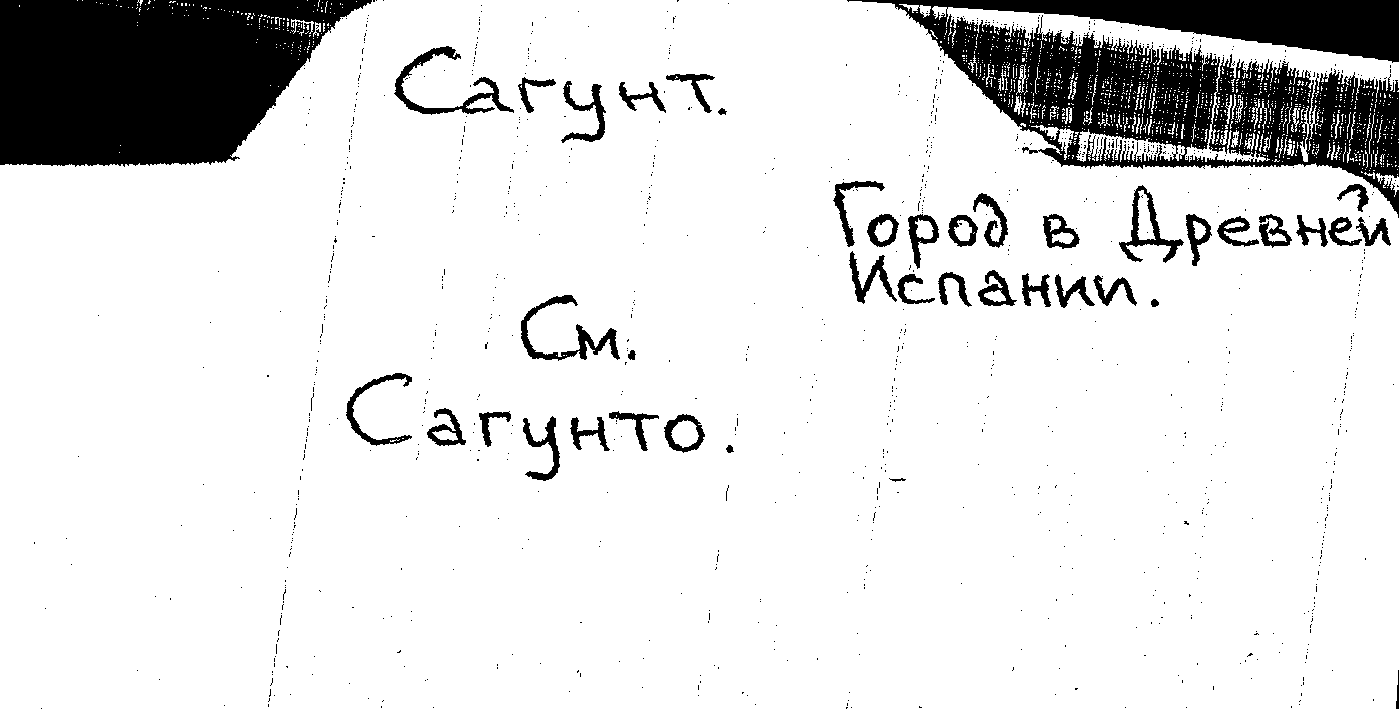 Сагунт.
Город в Древней
Испании.
См.
Сагунто.